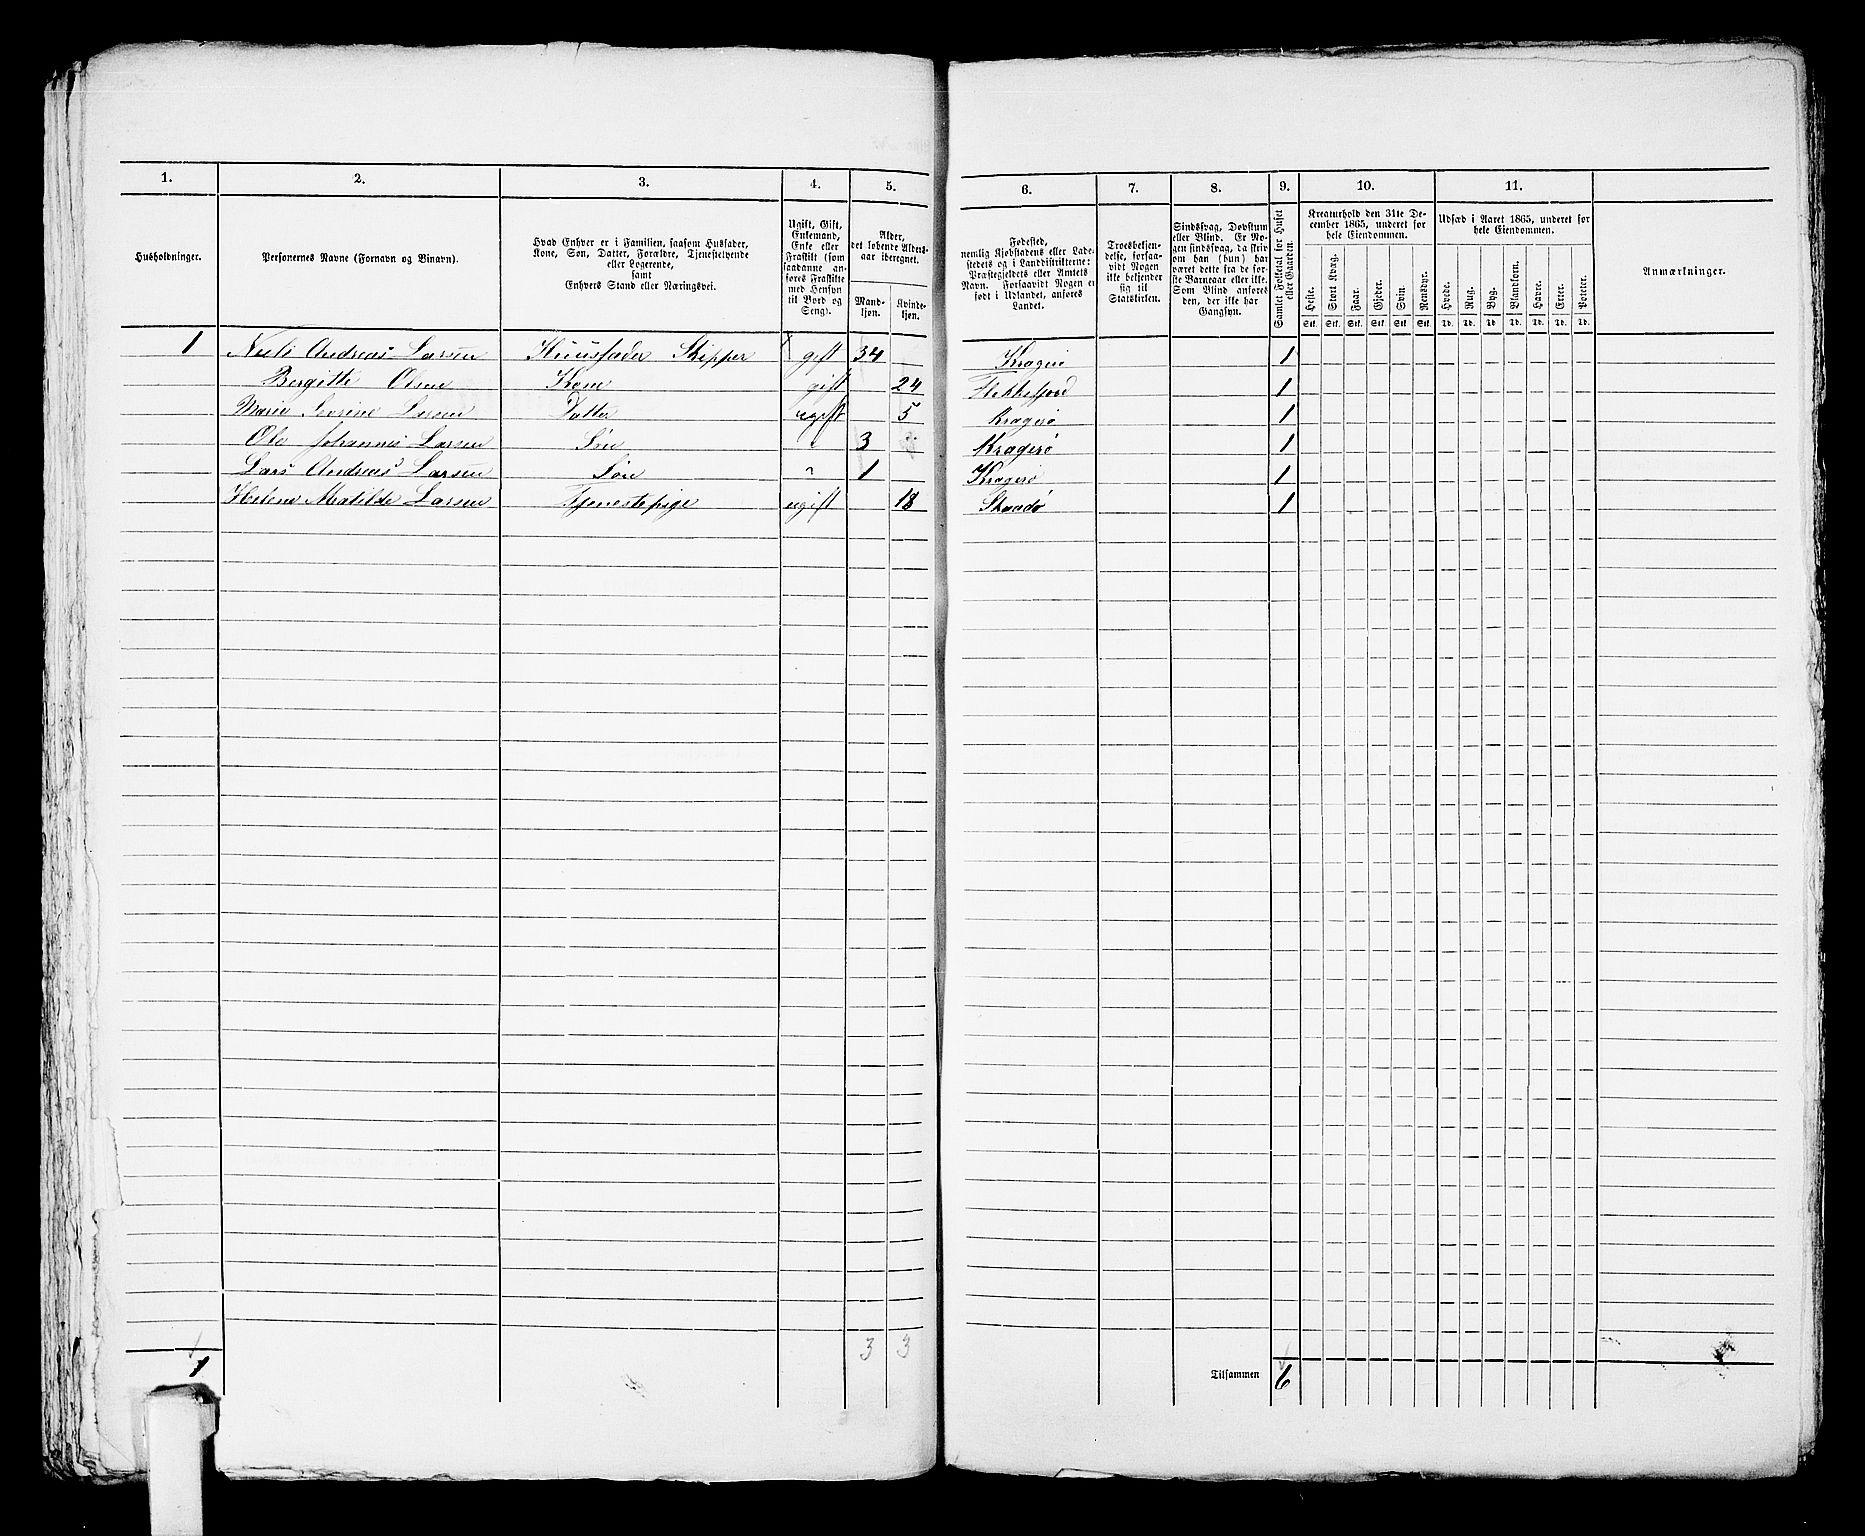 1. 2. 3. 4. 5. 6. 7. 8. 9. 10. 11.
Husholdninger.
Personernes Navne (Fornavn og Binavn).
Hvad Enhver er i Familien, saasom Husfader,
Kone, Søn, Datter, Forældre, Tjenestetyende
eller Logerende,
samt
Enhvers Stand eller Næringsvei.
Ugift, Gift,
Enkemand,
Enke eller
Fraskilt (som
saadanne an-
føres Fraskilte
med Hensyn
til Bord og
Seng).
Alder,
det løbende Alders-
aar iberegnet.
Mand-
kjøn.
Kvinde-
kjøn.
Fødested,
nemlig Kjøbstadens eller Lade-
stedets og i Landdistrikterne:
Præstegjeldets eller Amtets
Navn. Forsaavidt Nogen er
født i Udlandet, anføres
Landet.
Troesbekjen-
delse, forsaa-
vidt Nogen
ikke bekjender
sig til
Statskirken.
Sindssvag, Døvstum
eller Blind. Er No-
gen sindssvag, da skriv
om han (hun) har
været dette fra de før-
ste Barneaar eller ikke.
Som Blind anføres
den, der ikke har
Gangsyn.
Samlet Folketal for Huset
eller Gaarden.
Kreaturhold den 31te De-
cember 1865, underet for
hele Eiendommen.
Heste. Stort Kvæg. Faar. Gjeder. Svin. Rensdyr.
Stk. Stk. Stk. Stk. Stk. Stk.
Udsæd i Aaret 1865, underet for
hele Eiendommen.
Hvede. Rug. Byg. Blandkorn. Havre. Erter. Poteter.
Td. Td. Td. Td. Td. Td. Td.
Anmærkninger.
1 Niels Andreas Larsen Huusfader Skipper gift 34 Kragerø 1
Bergitte Olsen Kone gift 24 Flekkefjord 1
Marie Severine Larsen Datter ugift 5 Kragerø 1
Ole Johannes Larsen Søn " 3 Kragerø 1
Lars Andreas Larsen Søn " 1 Kragerø 1
Helene Matilde Larsen Tjenestepige ugift 18 Skaadø 1
1 3 3 Tilsammen 6